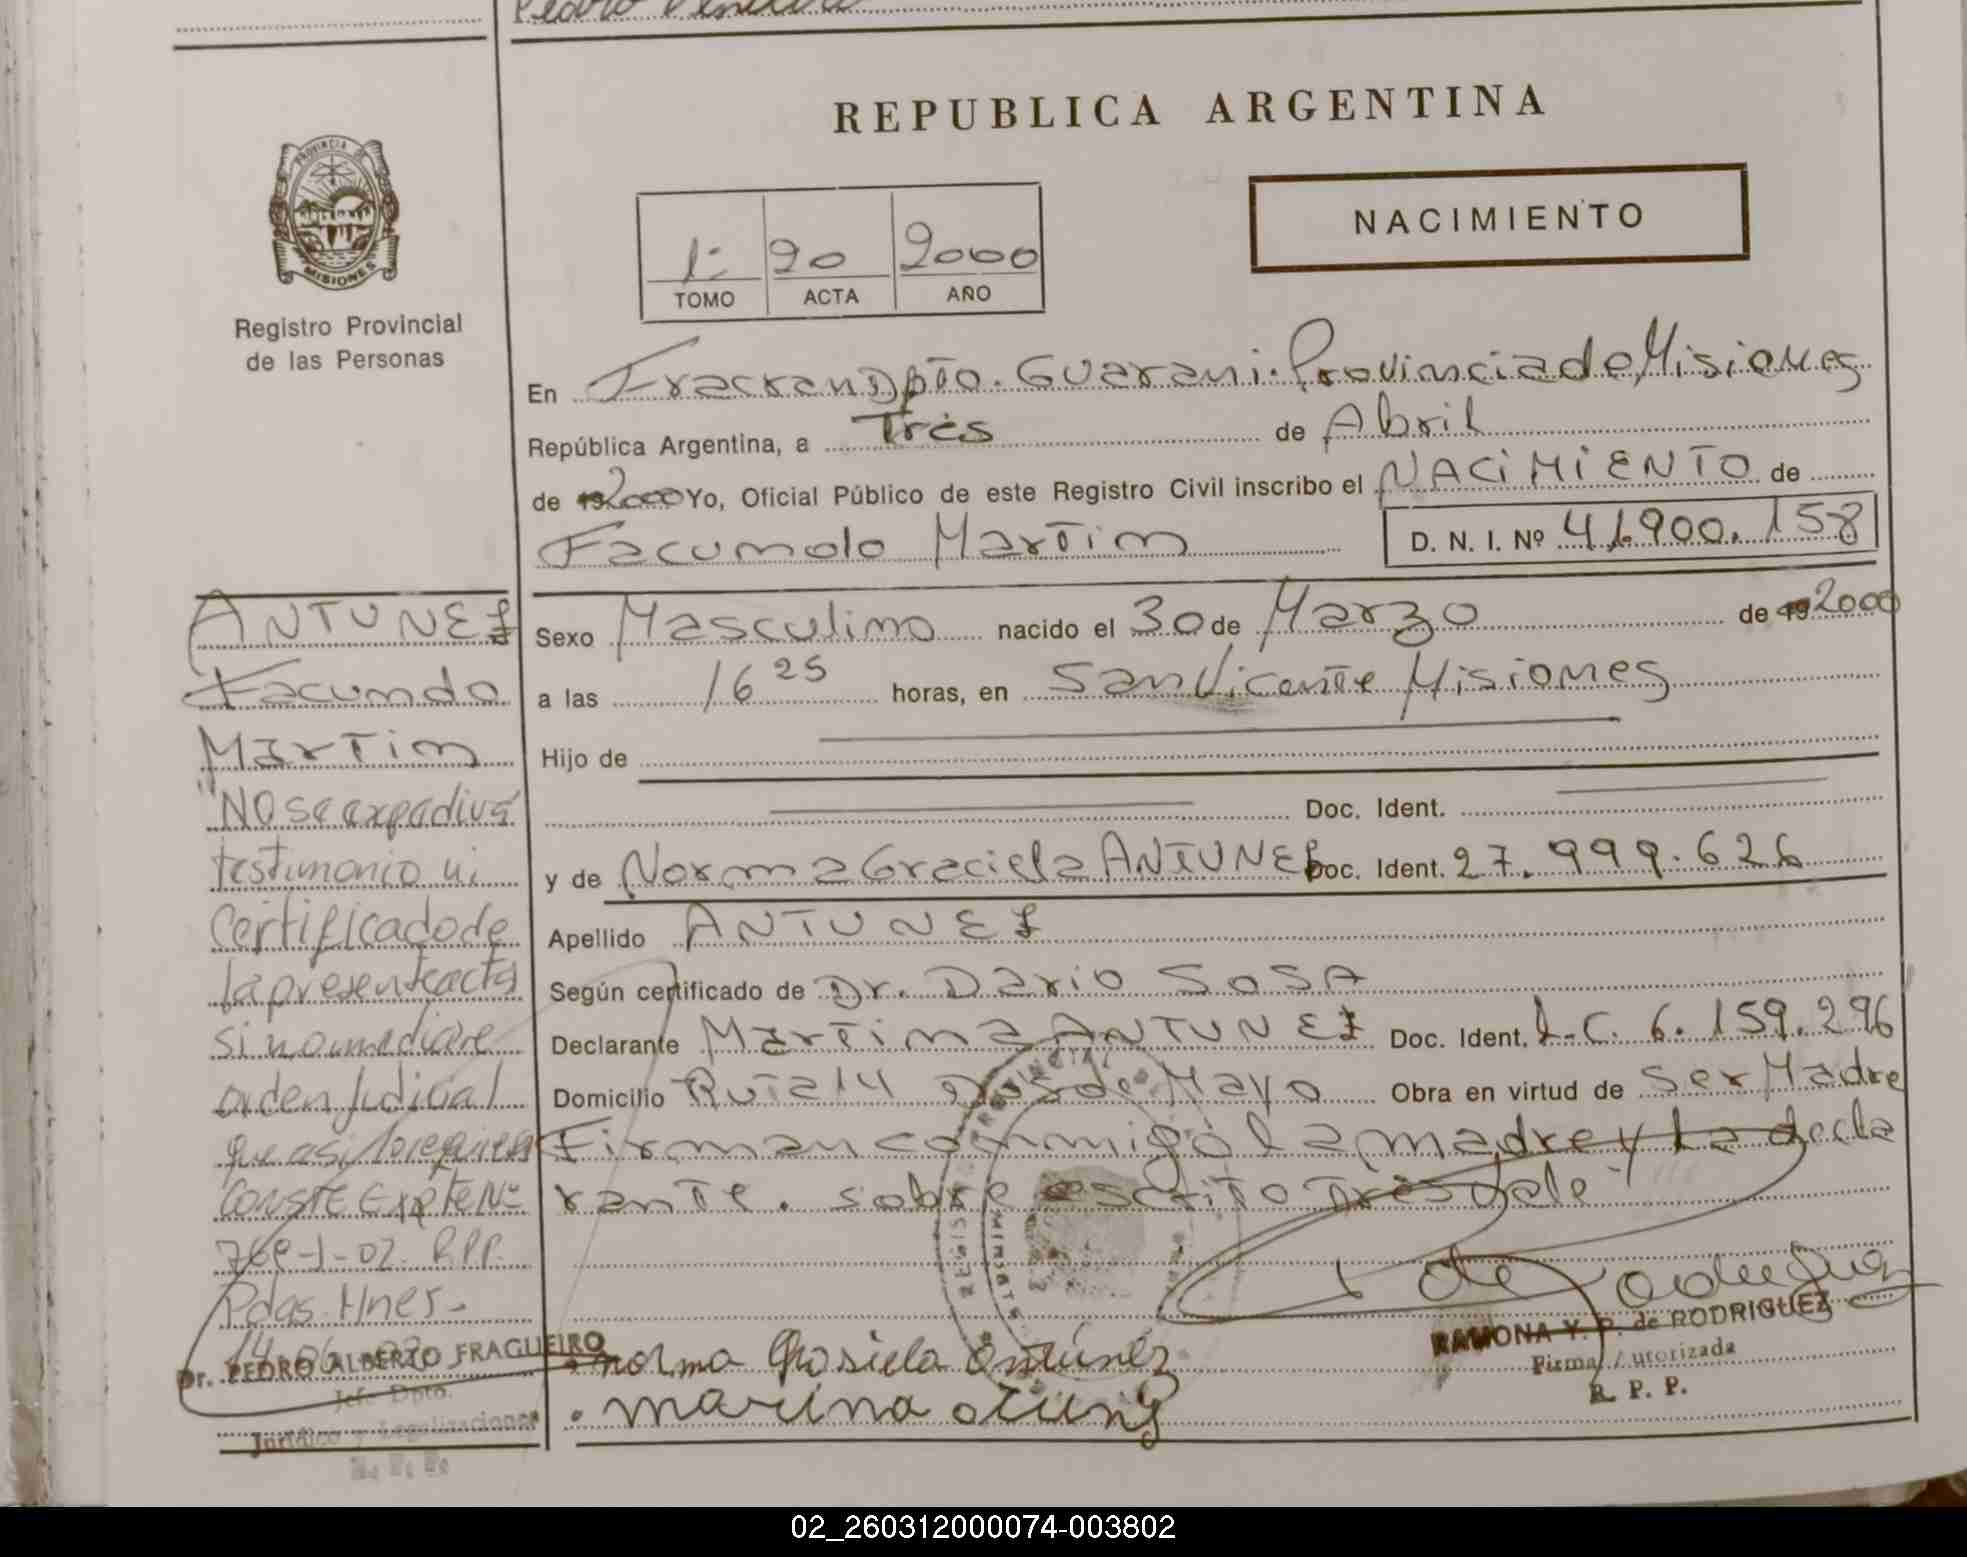 Pedro
REPUBLICA ARGENTINA
NACIMIENTO
1º 20 2000
TOMO ACTA AÑO
PROVINCIA DE
MISIONES
Registro Provincial
de las Personas
En Fracran Dpto. Guarani. Provincia de Misiones
República Argentina, a Tres de Abril
de 192000 Yo, Oficial Público de este Registro Civil inscribo el NACIMIENTO de
Facundo Martin D. N. I. Nº 41.900.158
ANTUNEZ
Facundo
Martin
"No se expedirá
testimonio ni
Certificado de
la presente acta
si no mediare
orden Judicial
que así lo requiera
CONSTE Expte Nº
-1-02. R.P.P.
Pdas. Mnes-
Dr. PEDRO ALBERTO FRAGUEIRO
Jefe Dpto.
Jurídico y Legalizaciones
R. P. P.
Sexo Masculino nacido el 30 de Marzo de 192000
a las 16 25 horas, en San Vicente Misiones
Hijo de
Doc. Ident.
y de Norma Graciela ANTUNEZ Doc. Ident. 27.999.626
Apellido ANTUNEZ
Según certificado de Dr. Dario SOSA
Declarante Martina ANTUNEZ Doc. Ident. L.C. 6.159.296
Domicilio Ruta 14 Dos de Mayo Obra en virtud de Ser Madre
Firman conmigo la madre y la decla
rante. sobre escrito Tres Vale
de Rodriguez
RAMONA Y. P. de RODRIGUEZ
Firma Autorizada
R. P. P.
norma Grasiela Antúnez
02_260312000074-003802